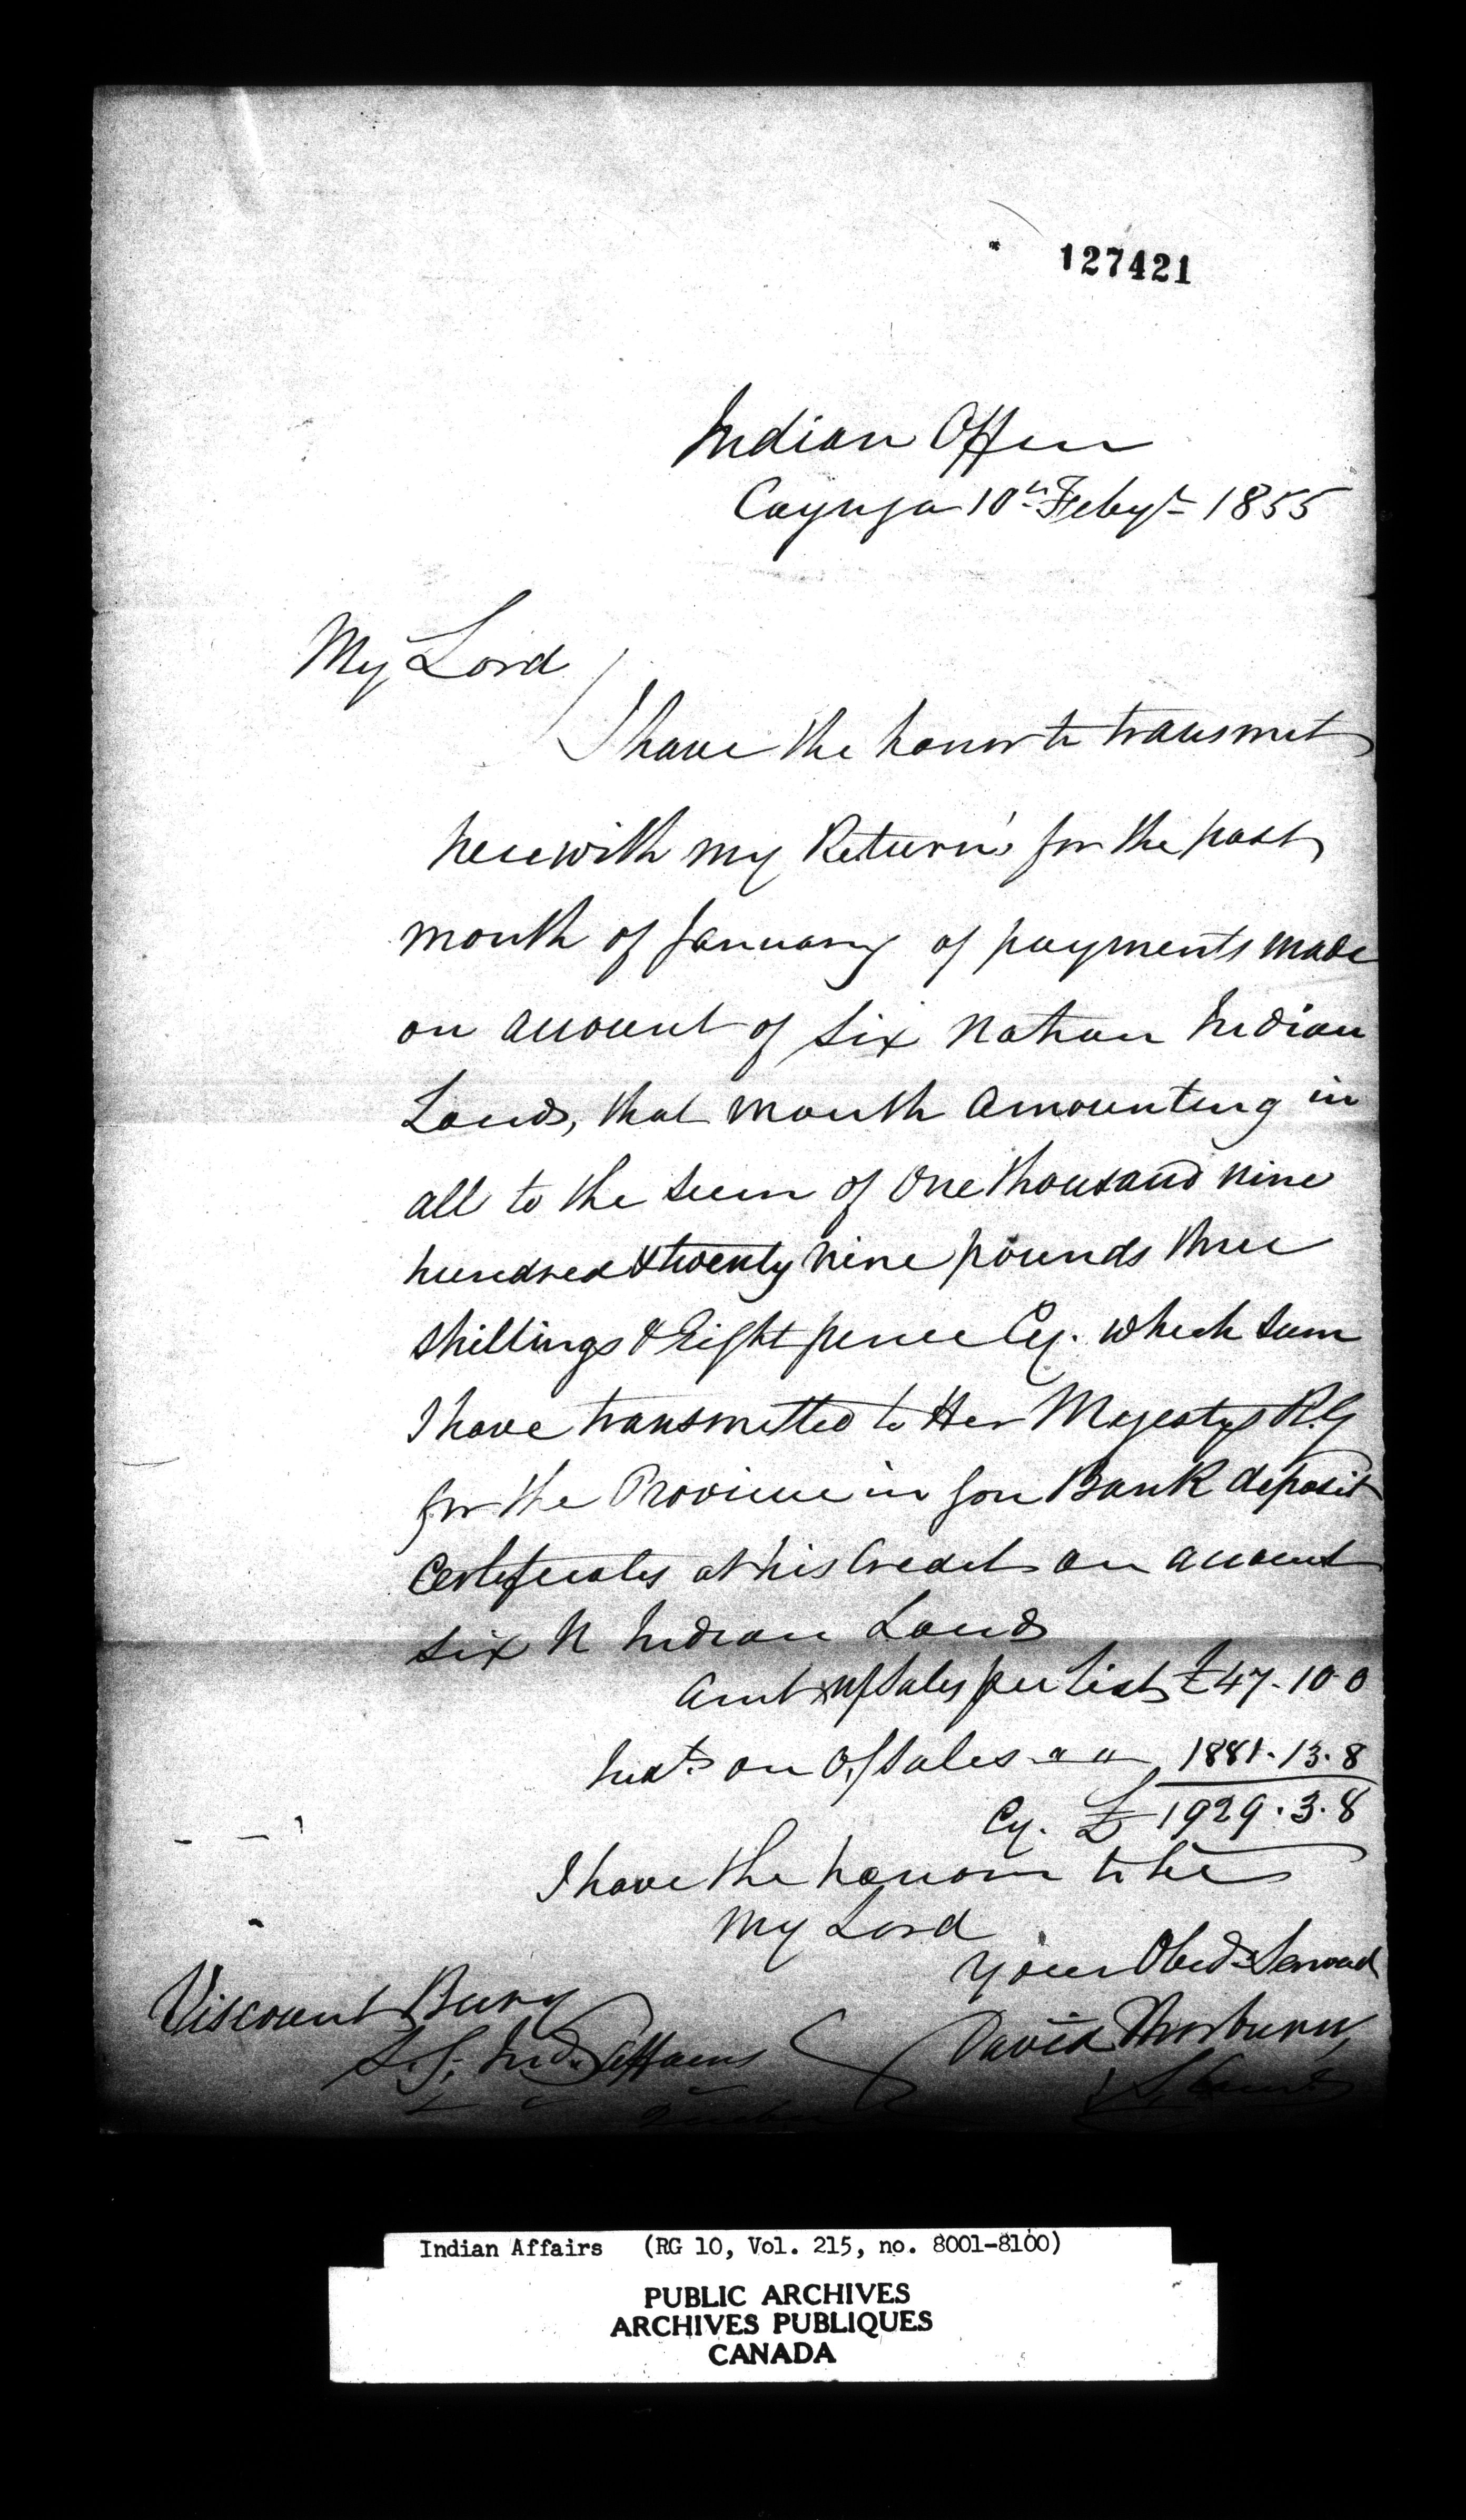 127421
Indian Office
Cayuga 10th Feby 1855
My Lord
I have the honor to transmit
herewith my Return's for the past
month of January of payments made
on account of Six Nation Indian
Lands, that month amounting in
all to the sum of One thousand nine
hundred & twenty nine pounds three
shillings & Eight pence Cy. which sum
I have transmitted to Her Majestys R.G
for the Province in four Bank deposit
Certificates at his Credit on account
six N Indian Lands
Amt of Sales per List £47-10-0
Inst on O/Sales " " 1881.13.8
Cy. £1929.3.8
I have the honour to be
My Lord
Your Obed Servant
David Thorburn,
Viscount Bury
S.G. Ind. Affairs
Quebec
Indian Affairs (RG 10, Vol. 215, no. 8001-8100)
PUBLIC ARCHIVES
ARCHIVES PUBLIQUES
CANADA